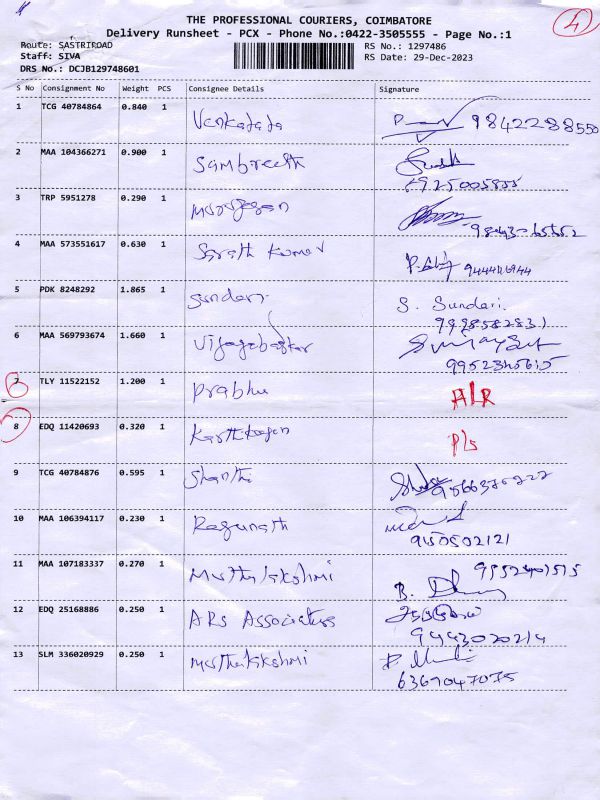 4
THE PROFESSIONAL COURIERS, COIMBATORE
Delivery Runsheet - PCX - Phone No.:0422-3505555 - Page No.:1
Route: SASTRIROAD
RS No.: 1297486
Staff: SIVA
RS Date: 29-Dec-2023
DRS No.: DCJB129748601
S No Consignment No Weight PCS Consignee Details Signature
1 TCG 40784864 0.840 1 Venkatada 9842288550
2 MAA 104366271 0.900 1 Sambreeth
3 TRP 5951278 0.290 1
4 MAA 573551617 0.630 1 Sarath Kumar
5 PDK 8248292 1.865 1 Sundari S. Sundari.
9998582831
6 MAA 569793674 1.660 1 Vijayabaskar
9952345615
7 TLY 11522152 1.200 1 Prabhu
8 EDQ 11420693 0.320 1 Karthikeyan
9 TCG 40784876 0.595 1 Shanthi
10 MAA 106394117 0.230 1 Ragunath
9150502121
11 MAA 107183337 0.270 1 Muthulakshmi
12 EDQ 25168886 0.250 1 ARS Associates
9443020214
13 SLM 336020929 0.250 1 Muthulakshmi
6369047075